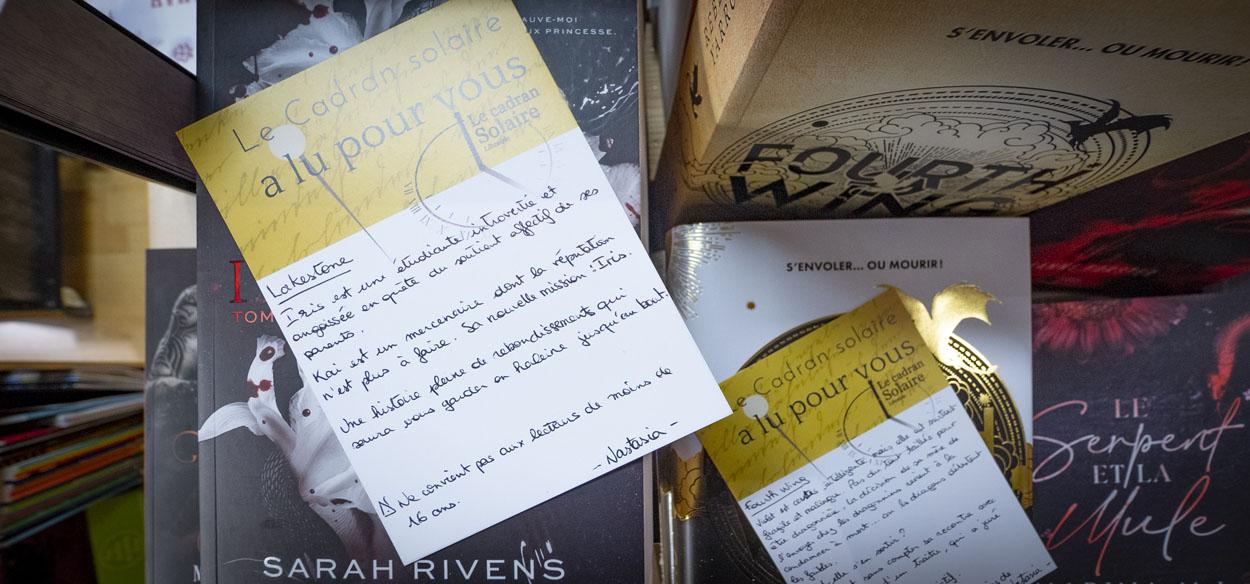 AUVE-MOI
UX PRINCESSE.
Le Cadran solaire
a lu pour vous
Le cadran
Solaire
Lakestone
Iris est une étudiante introvertie et
angoissée en quête du soutien affectif de ses
parents.
Kai est un mercenaire dont la réputation
n'est plus à faire. Sa nouvelle mission : Iris.
Une histoire pleine de rebondissements qui
saura vous garder en haleine jusqu'au bout.
⚠ Ne convient pas aux lecteurs de moins de
16 ans.
- Nastasia -
TOM
SARAH RIVENS
S'ENVOLER... OU MOURIR!
FOURTH
WING
S'ENVOLER... OU MOURIR!
e Cadran solaire
a lu pour vous
Le cadran
Solaire
Fourth Wing
fragile et
être dragonnière. La décision de sa mère de
les faibles.
LE
Serpent
ET LA
Mule